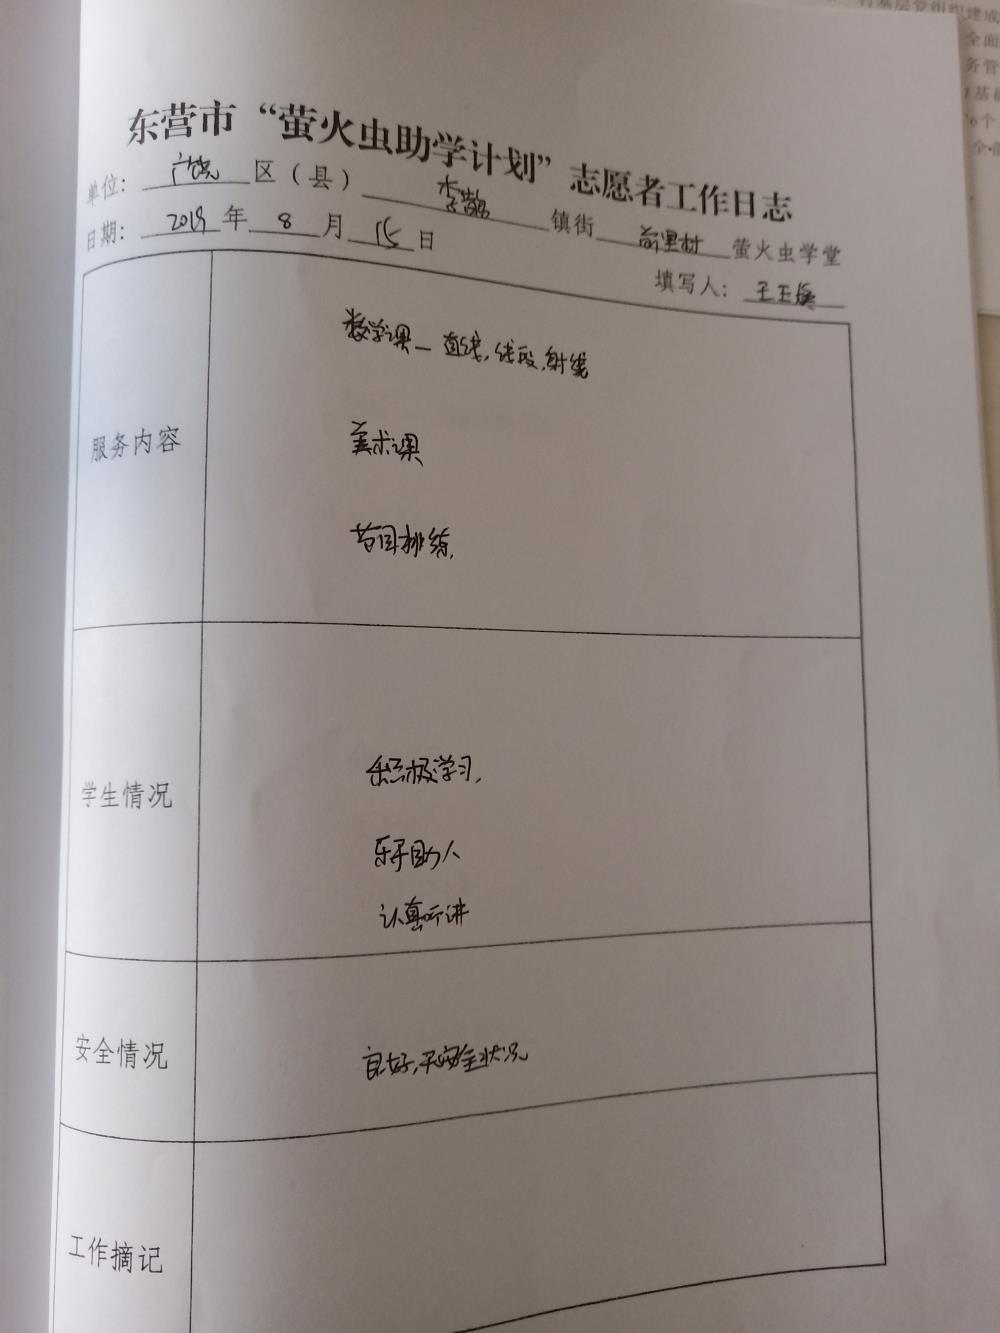 东营市“萤火虫助学计划”志愿者工作日志
单位：广饶区（县）李鹊镇街前里村萤火虫学堂
日期：2019年8月15日
填写人：王玉
服务内容
数学课—直线,线段,射线
美术课
节目排练,
学生情况
积极学习,
乐于助人
认真听讲
安全情况
良好,无安全状况
工作摘记
村基层党组织建成
全面
务管
基
6个
全面